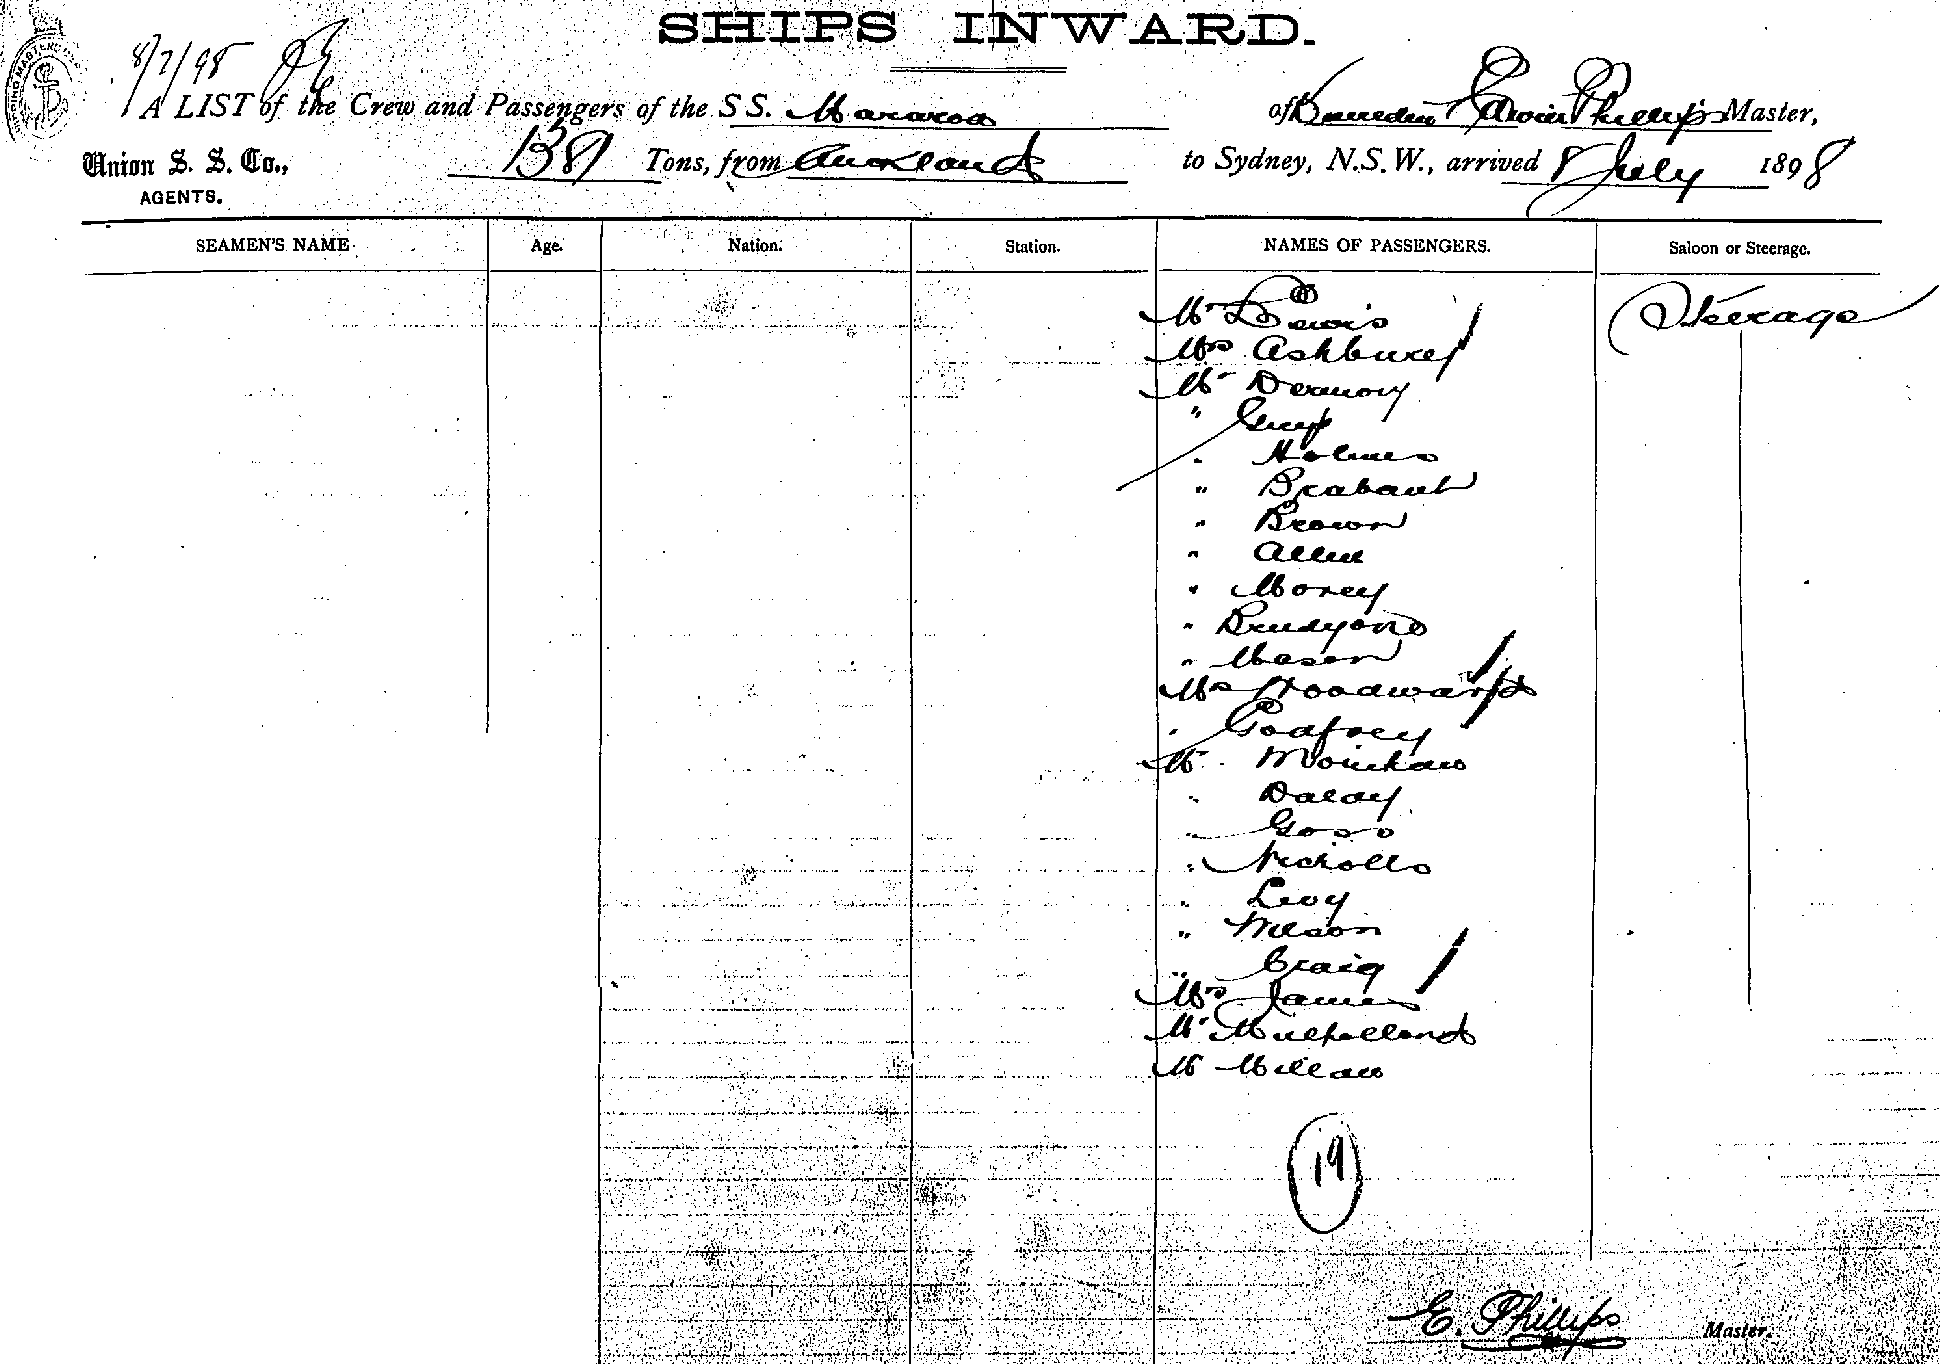 SHIPS INWARD.
8/7/98
A LIST of the Crew and Passengers of the SS. Mararoa of Dunedin Edwin Phillips Master,
Union S. S. Co., 1381 Tons, from Auckland to Sydney, N.S.W., arrived 8 July 1898
AGENTS.
SEAMEN'S NAME. Age. Nation. Station. NAMES OF PASSENGERS. Saloon or Steerage.
Mr Lewis Steerage
Mrs Ashbury
Mr
" Guy
" Holmes
" Brabant
" Brown
" Allen
" Morey
"
" Mason
Mrs Woodward
" Godfrey
Mr
" Dalay
" Goss
" Nicholls
" Levy
" Wilson
" Craig
Mrs James
Mr Mulholland
Mr Millan
19
E. Phillips Master.